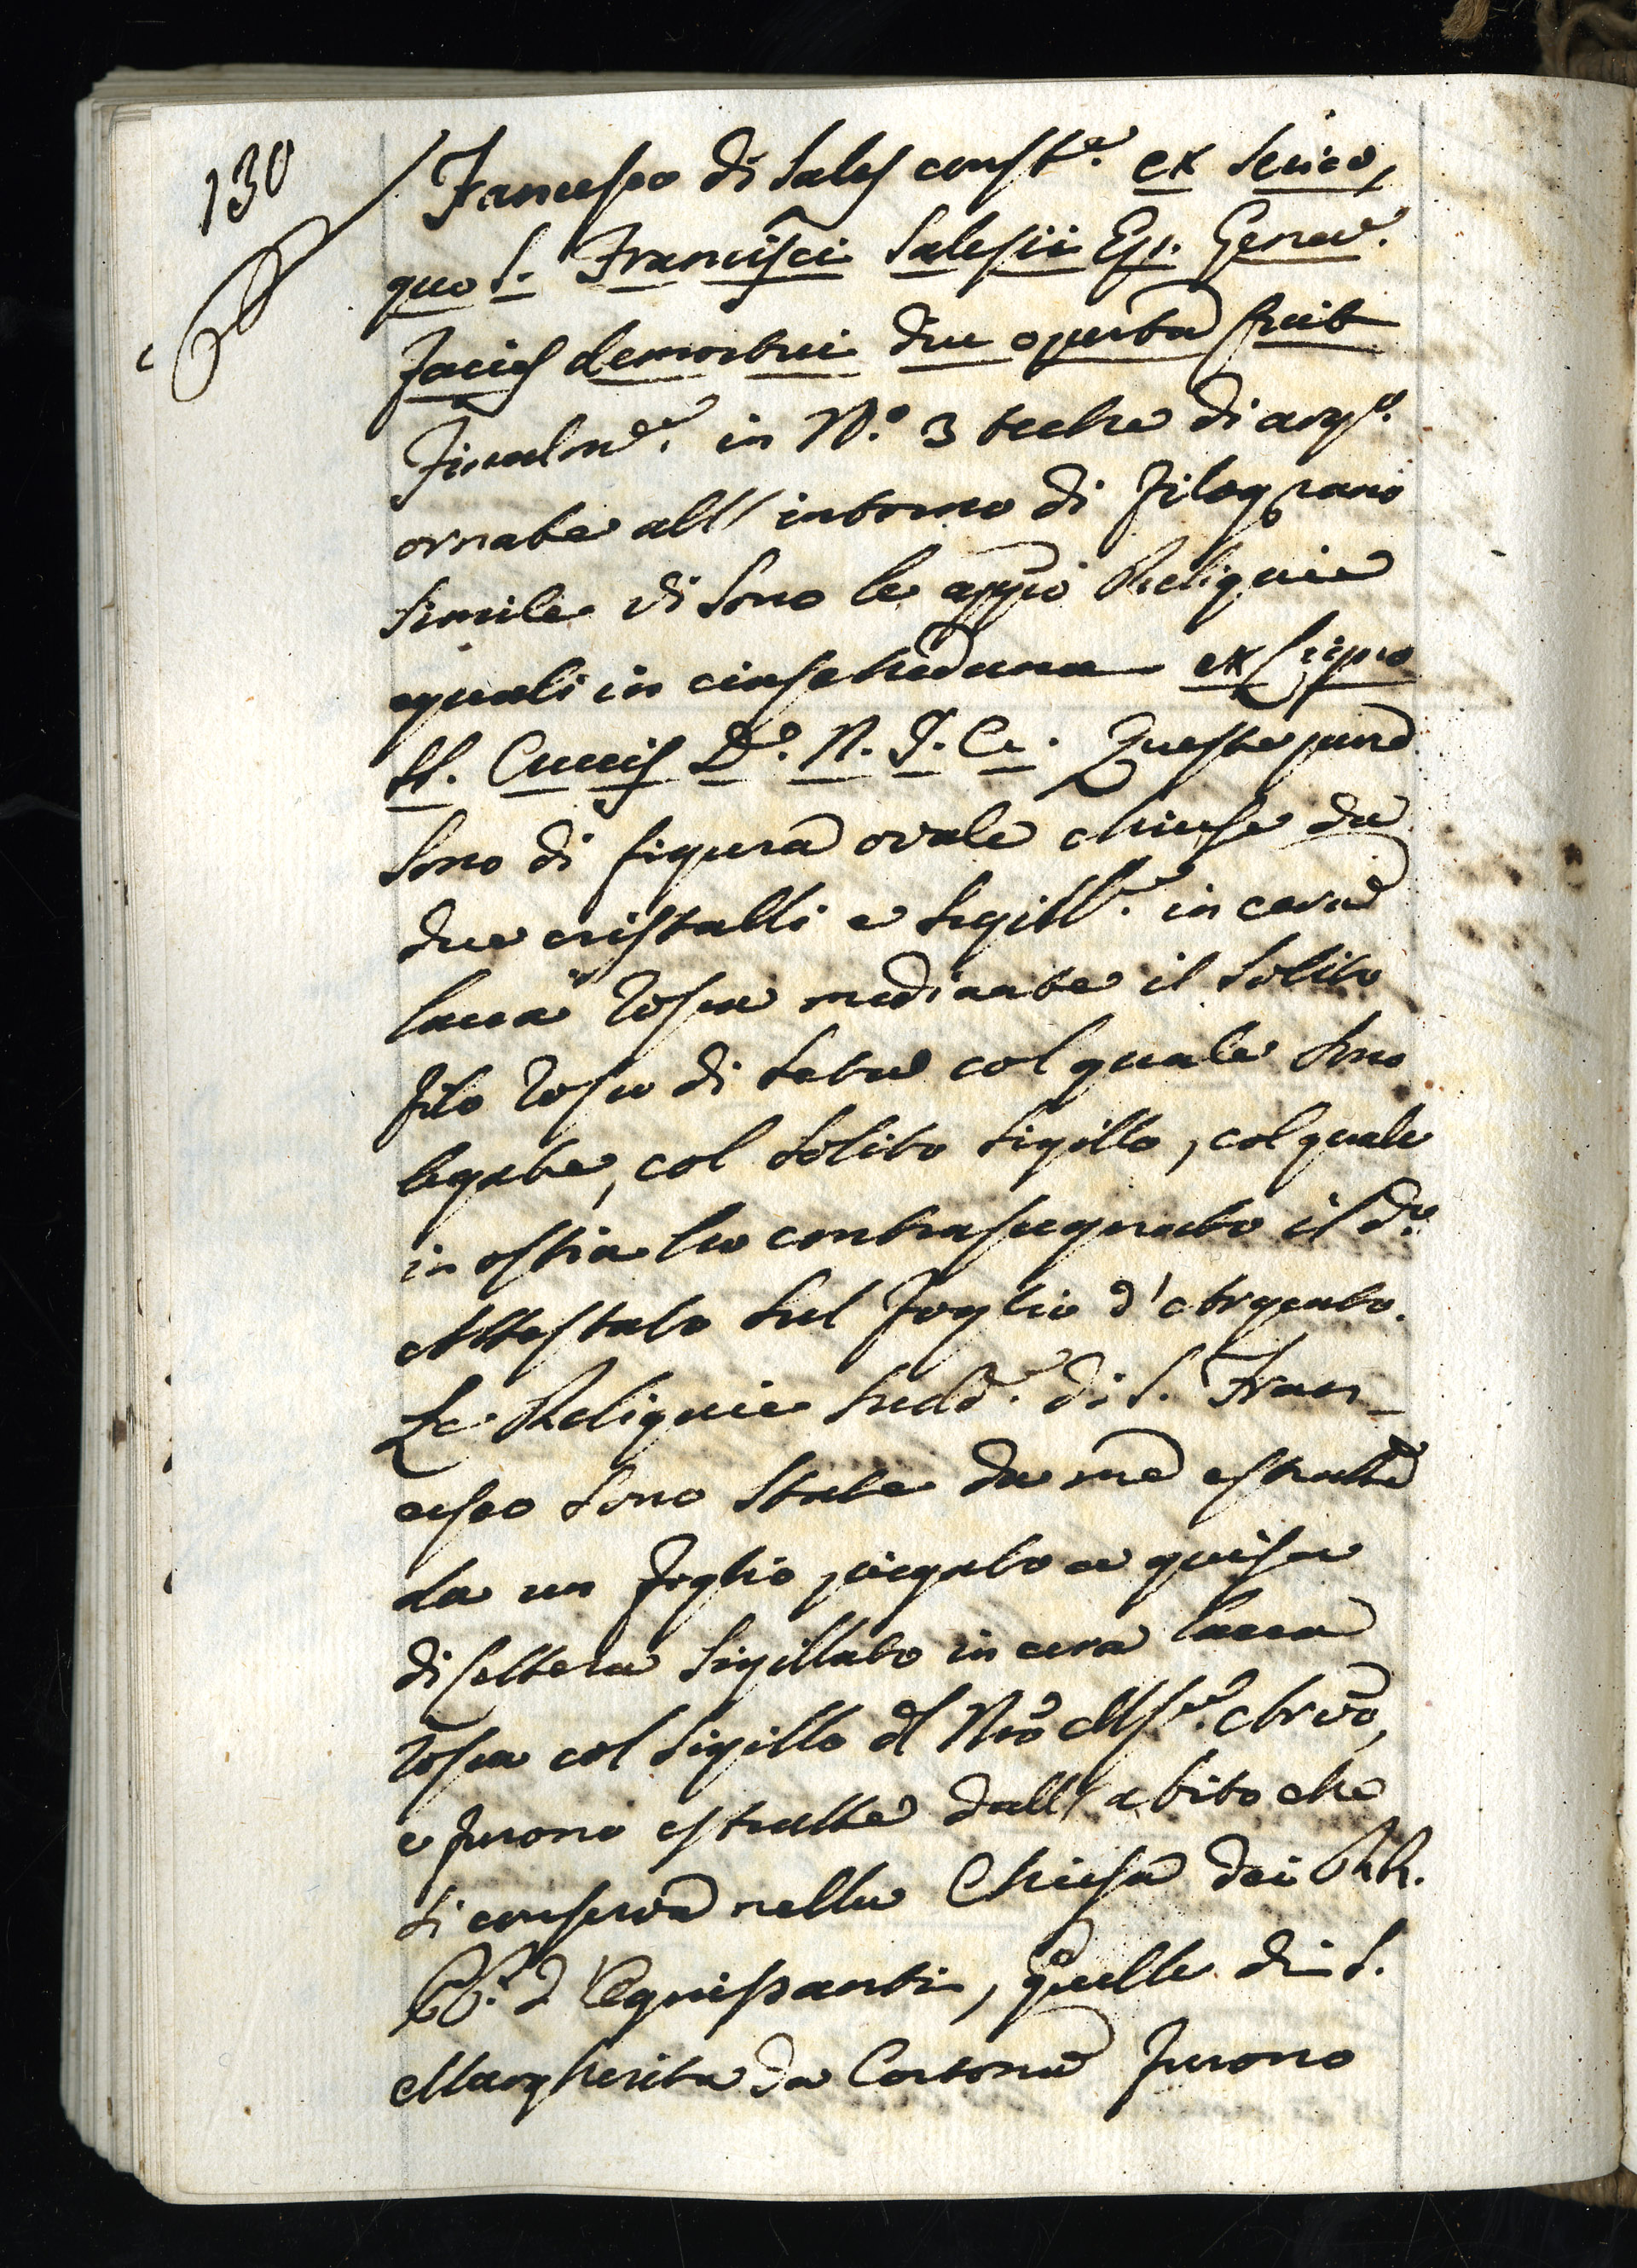 130
Francesco di Sales const.e ex serico,
quo S. Francisci Salesii Ep. Genev.
facies demortui diu operta fuit
Finalm.e in N.o 3 teche di arg.o
ornate all'intorno di filograno
simile vi sono le appiò Reliquie
eguali in ciascheduna ex Ligno
SS. Crucis D. N. J. C. Queste pure
sono di figura ovale chiuse da
due cristalli e sigill.e in cera
lacca rossa mediante il solito
filo rosso di seta col quale sono
legate, col solito sigillo, col quale
in ostia ho contrasegnato il d.o
Attestato sul foglio d'Argento.
Le Reliquie sudd.e di S. Fran-
cesco sono state da me estratte
da un foglio piegato a guisa
di lettera sigillato in cera lacca
rossa col sigillo dl Nr̃o Ms.e Arcivõ,
e furono estratte dall'abito che
si conserva nella Chiesa dei RR.
PP. d'Ognissanti, quelle di S.
Margherita da Cortona furono